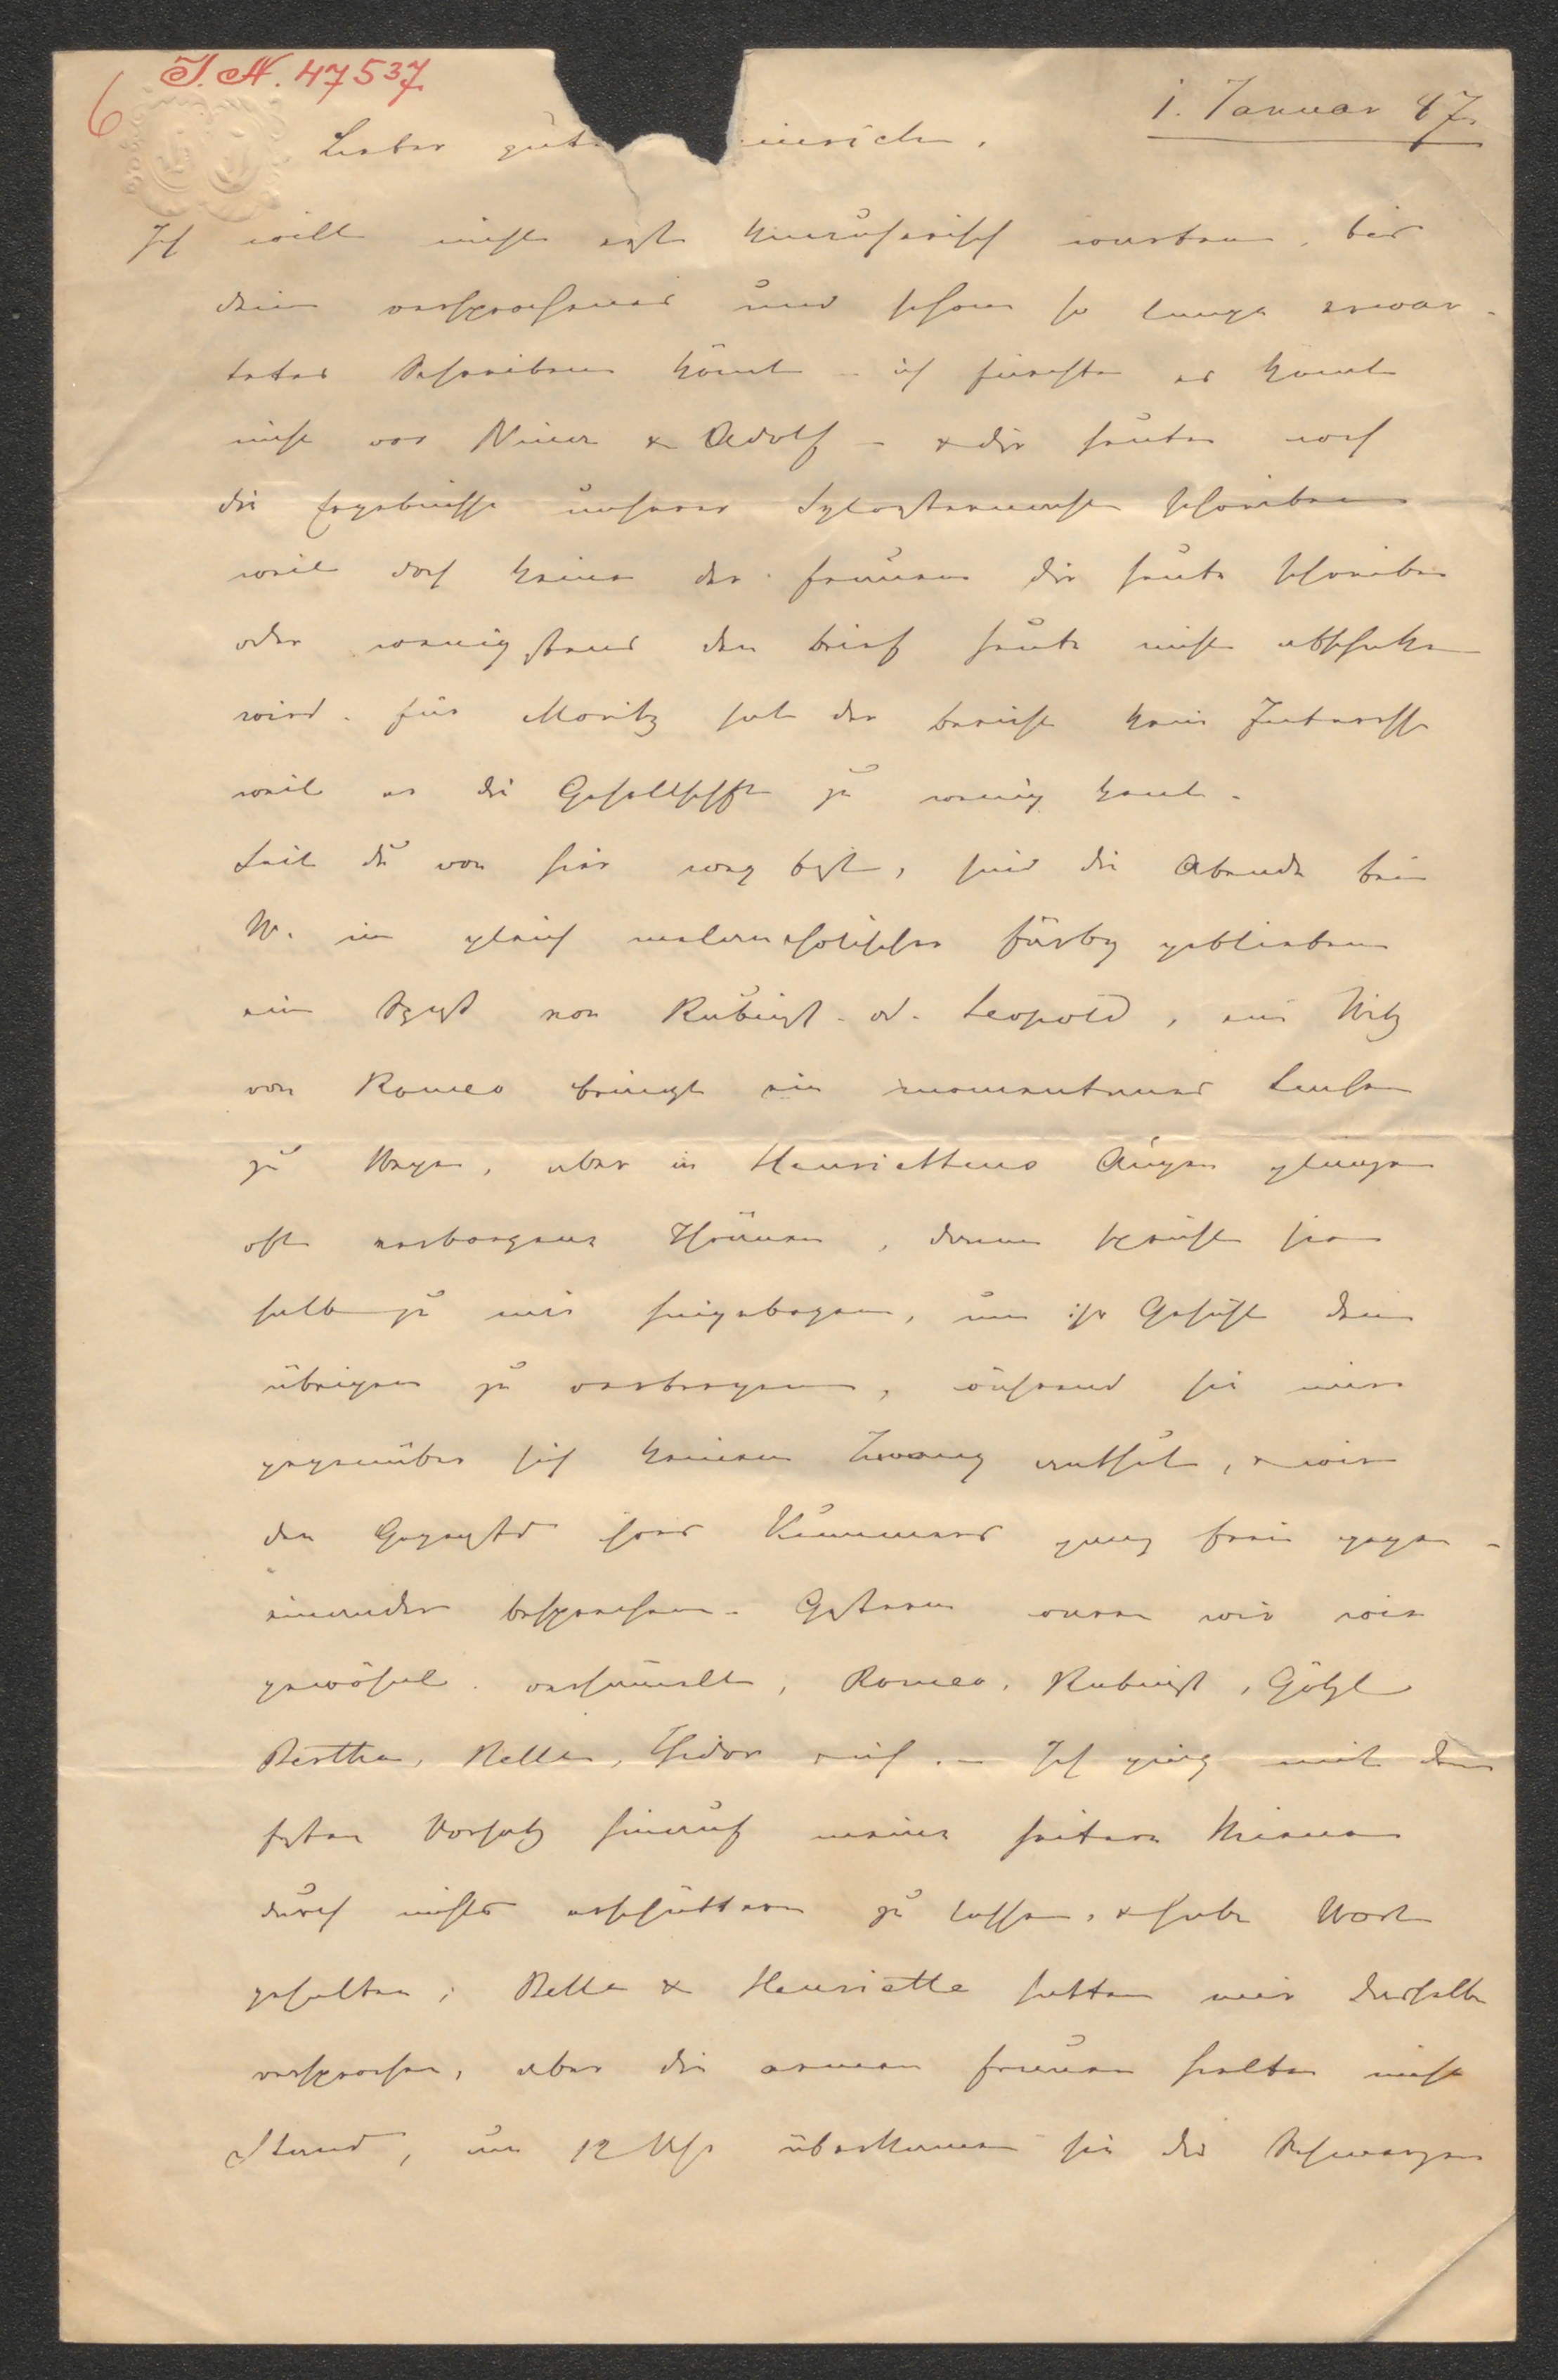 J. N. 47537
6
1. Januar 47
Lieber gut einrich,
Ich will nicht erst kaufmänisch warten, bis
dein versprochenes und schon so lange erwar-
tetes Schreiben kömt – ich fürchte es komt
nicht vor Niner & Adolf – & dir heute noch
die Ergebnisse unserer Sylvesternacht schreiben
weil doch keine der Frauen dir heute schreiben
oder wenigstens den Brief heute nicht abschicken
wird. für Moritz hat der Bericht kein Interesse
weil er die Gesellschft zu wenig kent.
Seit du von hier weg bist, sind die Abende bei
W. in gleich melancholischer Färbg geblieben
ein Spaß von Rubinst. od. Leopold, ein Witz
von Romeo bringt ein momentanes Lachen
zu Wege, aber in Henriettens Augen glänzen
oft verborgene Thränen, dann spricht sie
halb zu mir hingebogen, um ihr Gefühl den
übrigen zu verbergen, während sie mir
gegenüber sich keinen Zwang anthut, & wir
den Gegenstd ihres Kummers ganz frei gegen-
einander besprechen. Gestern waren wir wie
gewöhnl. versammelt, Romeo, Rubinst, Götzl
Bertha, Bella, Isidor & ich. – Ich ging mit dem
festen Vorsatz hinauf meine heitere Miene
durch nichts erschüttern zu lassen, & habe Wort
gehalten; Bella & Henriette hatten mir dasselbe
versprochen, aber die armen Frauen hielten nicht
Stand, um 12 Uhr überkamen sie die Schmerzen